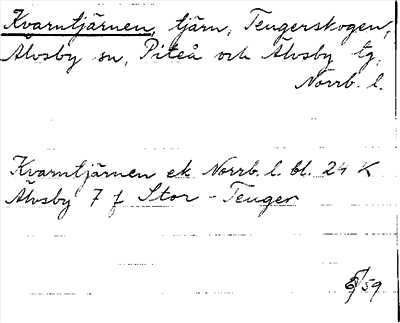 Kvarntjärnen, tjärn, Teugerskogen,
Älvsby sn, Piteå och Älvsby tg,
Norrb. l.
Kvarntjärnen ek. Norrb. l. bl. 24 K
Älvsby 7 f Stor-Teuger
/59